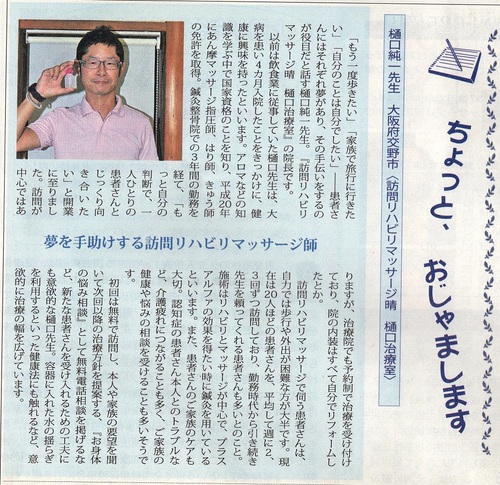 ちょっと、おじゃまします
樋口純一先生　大阪府交野市〈訪問リハビリマッサージ晴　樋口治療室〉
「もう一度歩きたい」「家族で旅行に行きた
い」「自分のことは自分でしたい」――患者さ
んにはそれぞれ夢があり、その手伝いをするの
が役目だと話す樋口純一先生。『訪問リハビリ
マッサージ晴　樋口治療室』の院長です。
以前は飲食業に従事していた樋口先生は、大
病を患い4カ月入院したことをきっかけに、健
康に興味を持ったといいます。アロマなどの知
識を学ぶ中で国家資格のことを知り、平成20年
にあん摩マッサージ指圧師、はり師、きゅう師
の免許を取得。鍼灸整骨院での3年間の勤務を
経て、「も
っと自分の
判断で、一
人ひとりの
患者さんと
じっくり向
き合いた
い」と開業
に至りまし
た。訪問が
中心ではあ
夢を手助けする訪問リハビリマッサージ師
りますが、治療院でも予約制で治療を受け付け
ており、院の内装はすべて自分でリフォームし
たとか。
訪問リハビリマッサージで伺う患者さんは、
自力では歩行や外出が困難な方が大半です。現
在は20人ほどの患者さんを、平均して週に2、
3回ずつ訪問しており、勤務時代から引き続き
先生を頼ってくれる患者さんも多いとのこと。
施術はリハビリとマッサージが中心で、プラス
アルファの効果を得たい時に鍼灸を用いている
といいます。また、患者さんのご家族のケアも
大切。認知症の患者さん本人とのトラブルな
ど、介護疲れにつながることも多く、ご家族の
健康や悩みの相談を受けることも多いそうで
す。
初回は無料で訪問し、本人や家族の要望を聞
いて次回以降の治療方針を提案する、『お身体
の悩み相談』として無料電話相談を掲げるな
ど、新たな患者さんを受け入れるための工夫に
も意欲的な樋口先生。容器に入れた水の揺らぎ
を利用するといった健康法にも触れるなど、意
欲的に治療の幅を広げています。